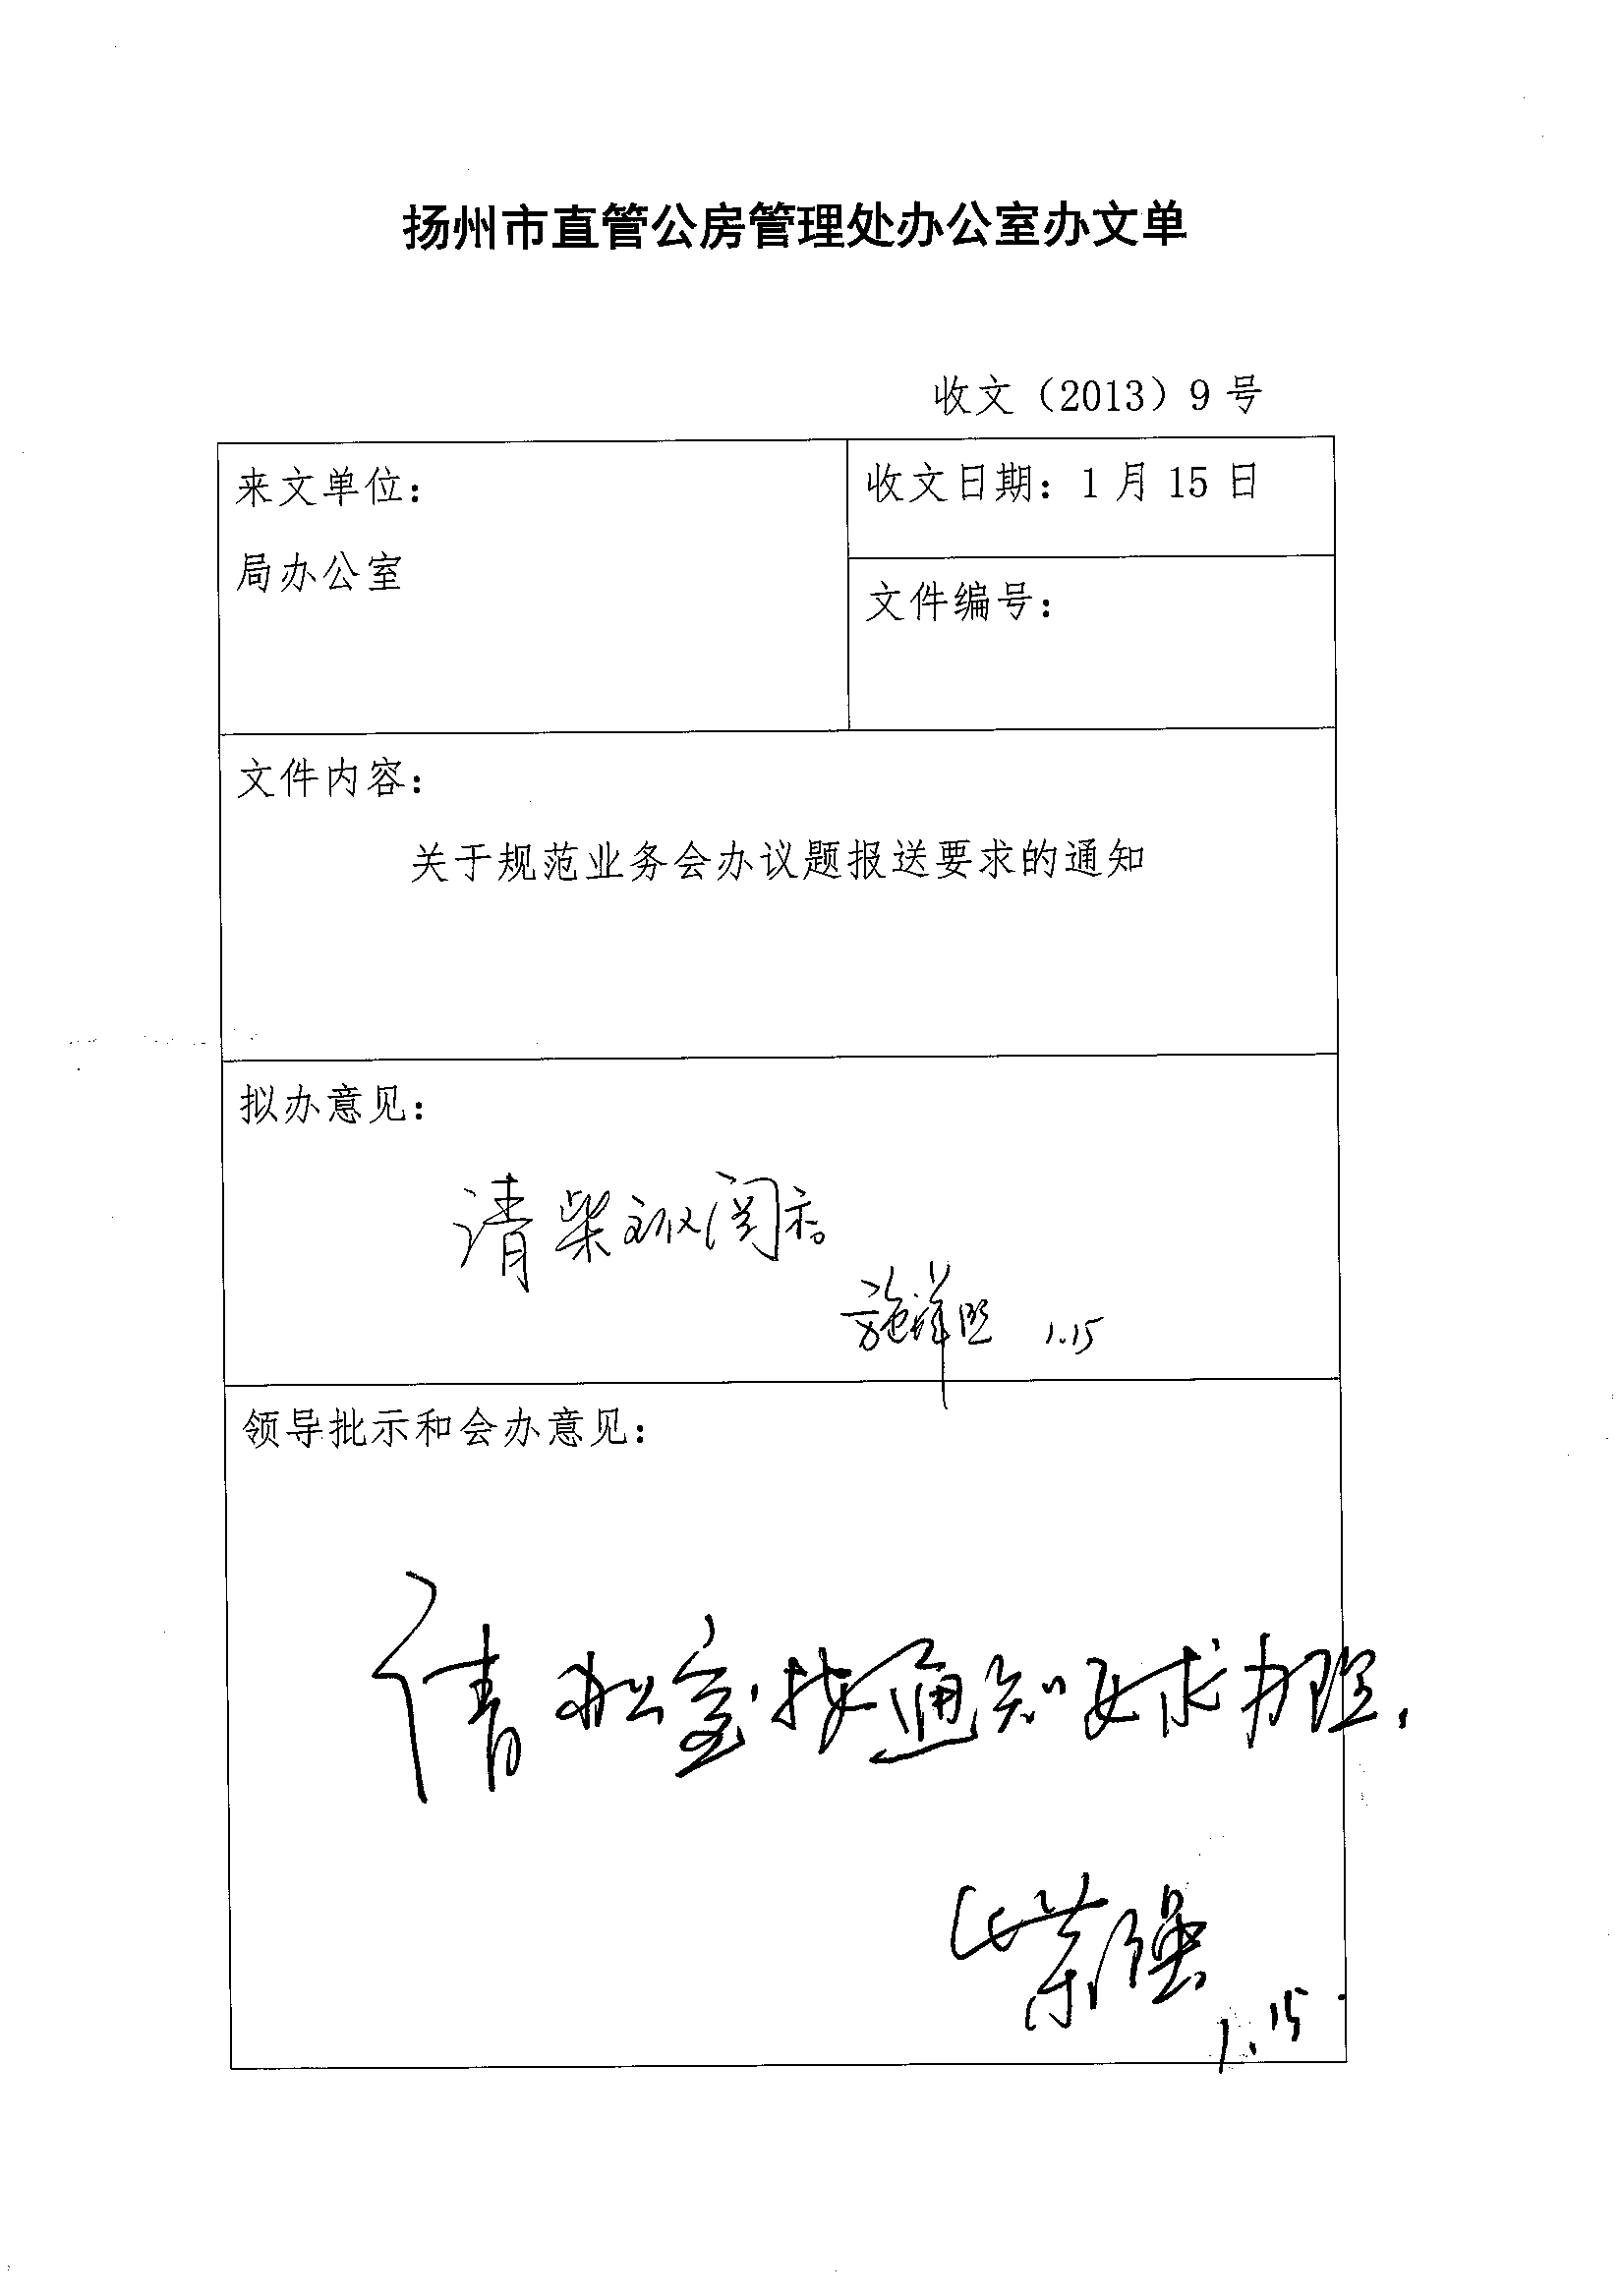 扬州市直管公房管理处办公室办文单
收文（2013）9 号
来文单位：
局办公室
收文日期：1 月 15 日
文件编号：
文件内容：
关于规范业务会办议题报送要求的通知
拟办意见：
请柴 阅示。
施祥 1.15
领导批示和会办意见：
请办公室按通知要求办理.
柴强
1.15